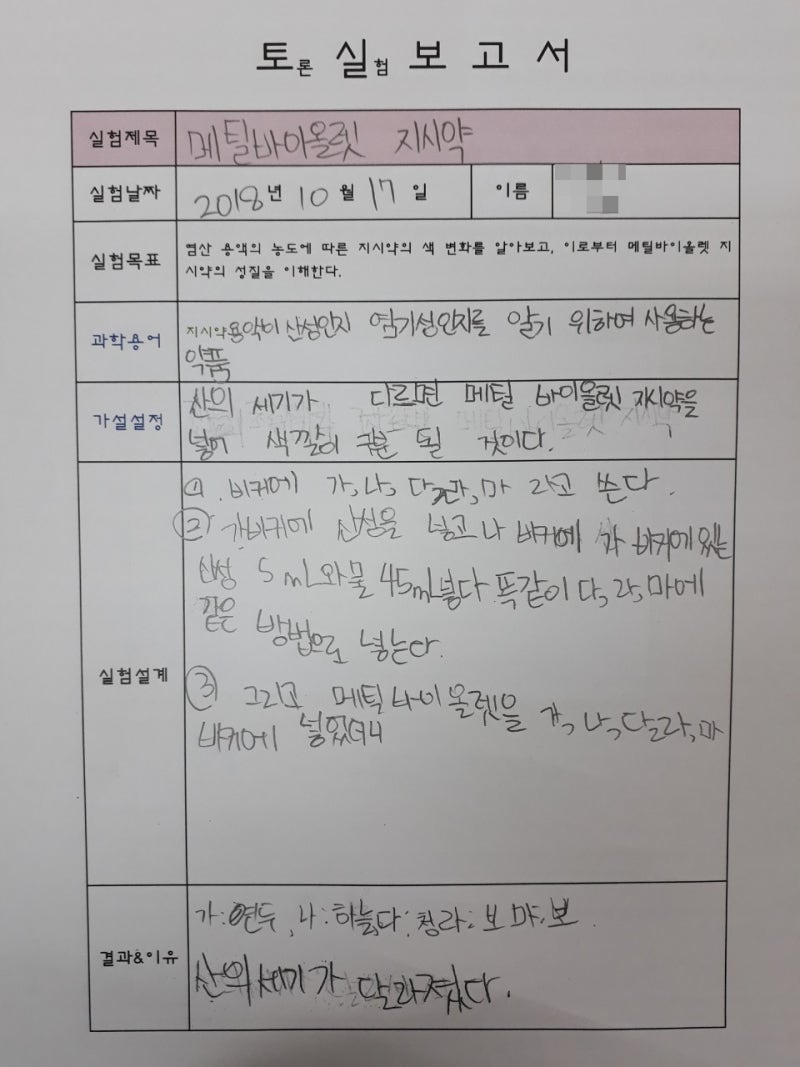 토론 실험 보고서
실험제목 메틸바이올렛 지시약
실험날짜 2018년 10월 17일 이름
실험목표 염산 용액의 농도에 따른 지시약의 색 변화를 알아보고, 이로부터 메틸바이올렛 지
시약의 성질을 이해한다.
과학용어 지시약 용액이 산성인지 염기성인지를 알기 위하여 사용하는
약품
가설설정 산의 세기가 다르면 메틸 바이올렛 지시약을
넣어 색깔이 구분 될 것이다.
실험설계
① 비커에 가, 나, 다, 라, 마 라고 쓴다.
② 가비커에 산성을 넣고 나 비커에 가 비커에 있는
산성 5mL와 물 45mL 넣다 똑같이 다, 라, 마에
같은 방법으로 넣는다.
③ 그리고 메틸 바이올렛을 가, 나, 다, 라, 마
비커에 넣었더니
결과&이유 가:연두, 나:하늘 다:청 라:보 마:보
산의 세기가 달라졌다.